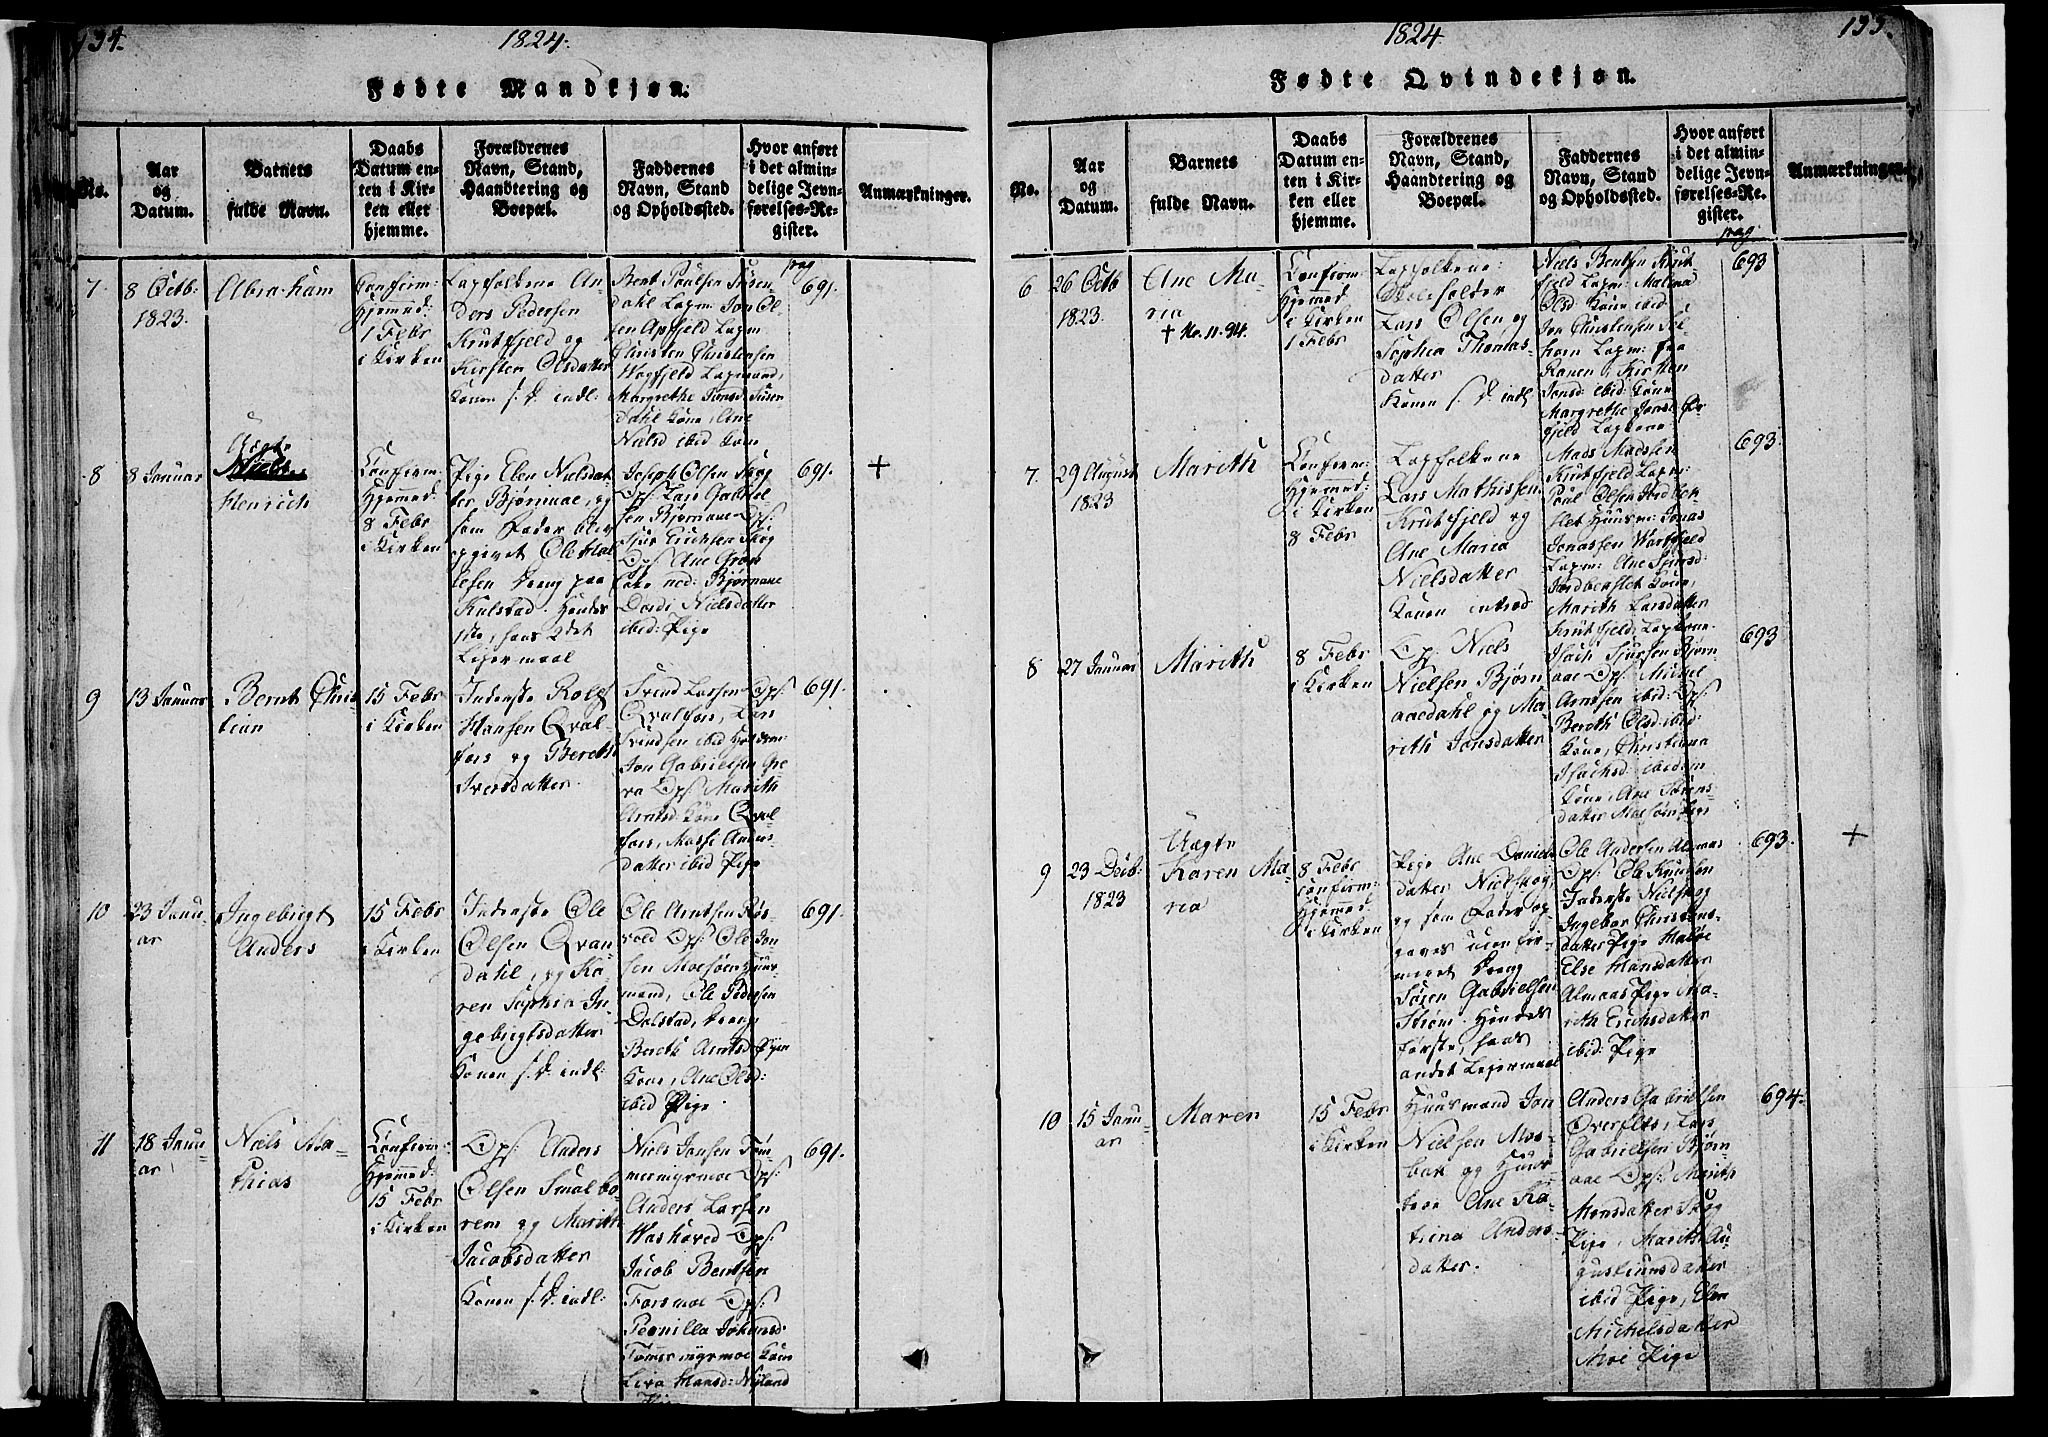 134.
1824.
Fødte Mandkjøn.
No.
Aar
og
Datum.
Barnets
fulde Navn.
Daabs
Datum en-
ten i Kir-
ken eller
hjemme.
Forældrenes
Navn, Stand,
Haandtering og
Boepæl.
Faddernes
Navn, Stand
og Opholdssted.
Hvor anført
i det almin-
delige Jevn-
førelses-Re-
gister.
Anmærkninger.
pag
7.
8 Octb:
1823.
Abraham
Confirm:
Hjemmed:
1 Febr
i Kirken
Lapfolkene An-
ders Pedersen
Krutfjeld og
Kirsten Olsdatter
Konen s. D. indl:
Bent Poulsen Susen-
dahl Lapm: Jon Ol-
sen Apfjeld Lapm
Christen Christensen
Wegfjeld Lapmand,
Margrethe Jonsd Susen-
dahl Kone, Ane
Nielsd ibid Kone
691.
8
8 Januar
Uægte
Niels
Henrich
Confirm
Hjemmed:
8 Febr
i Kirken
Pige Elen Nielsdat-
ter, Bjørnaae, og
som Fader blev
opgivet Ole Hal-
lesen Dreng paa
Kulstad. Hendes
1ste, hans 2det
Lejermaal
Joseph Olsen Skog
Ops: Lars Gabriel
sen Bjørnaae Ops:
Sjur Erichsen Skog
Ops: Ane Grøn
ned: Bjørnaae
Dordi Nielsdatter
ibid: Pige
691.
+
9
13 Januar
Bernt Chris-
tian
15 Febr
i Kirken
Inderste Rolef
Hansen Qval-
fors og Bereth
Iversdatter.
Svend Larsen Ops:
Qvalfors, Lars
Svendsen ibid
Jon Gabrielsen Gre-
va Ops: Marith
Arntsd: Kone Qval-
fors, Masse Anders-
datter ibid Pige
691.
10
23 Janu-
ar
Ingebrigt
Anders
15 Febr
i Kirken
Inderste Ole
Olsen Qvan
dahl, og Ka-
ren Sophia In-
gebrigtsdatter
Konen s. D. indl:
Ole Arntsen Røs-
vold Ops: Ole Jon
sen Mosøen Huus-
mand, Ole Pedersen
Dolstad, Dreng
Bereth Arntsd:
Kone, Ane Olsd:
ibid Pige.
691.
11
18 Janu-
ar
Niels Ma-
thias
Confirm:
Hjemmed:
15 Febr
i Kirken
Ops: Anders
Olsen Smalbo-
rem og Marith
Jacobsdatter
Konen s. D. indl:
Niels Jonsen Tøm-
mermyrmoe Ops:
Anders Larsen
Washoved Ops:
Jacob Bentsen
Forsmoe Ops:
Pernilla Johansd:
Tømmermyrmoe Kone
Hansd: Nyland
Pige
691.
133.
1824
Fødte Qvindekjøn.
No.
Aar
og
Datum.
Barnets
fulde Navn.
Daabs
Datum en-
ten i Kir-
ken eller
hjemme.
Forældrenes
Navn, Stand,
Haandtering og
Boepæl.
Faddernes
Navn, Stand
og Opholdssted.
Hvor anført
i det almin-
delige Jevn-
førelses-Re-
gister.
Anmærkninger.
pag
6
26 Octb
1823.
Ane Ma-
ria
+ No. 11. 94.
Confirm:
Hjemmed
i Kirken
1 Febr
Lapfolkene:
Skoleholder
Lars Olsen og
Sophia Thomas-
datter
Konen s. D. indl
Niels Bentsen Krut
fjeld Lapm: Malena
Olsd Kone ibid:
Jon Christensen
Lapm: fra
Ranen, Kirsten
Jonsd: ibid: Kone
Margrethe Jonsd:
fjeld Lapkone
693
7.
29 August
1823
Marith
Confirm:
Hjemmed:
i Kirken
8 Febr
Lapfolkene
Lars Mathissen
Krutfjeld og
Ane Maria
Nielsdatter
Konen introd
Mads Madssen
Krutfjeld Lapm:
Poul Olsen
Huusm: Jonas
Jonassen
Lapm: Ane
Kone,
Marith Larsdatter
Krutfjeld, Lapkone.
693.
8
27 Januar
Marith
8 Febr
i Kirken
Ops: Niels
Nielsen Bjørn
aaedahl og Ma-
rith Jonsdatter
Isach Sjursen Bjørn-
aae Ops: Michel
Arntsen ibid: Ops:
Bereth Olsd ibid:
Kone, Christiana
Isachsd: ibidem
Kone, Ane Sørens-
datter Mosøen Pige
693
9
23 Decb:
1823
Uægte
Karen Ma-
ria
8 Febr
confirm:
Hjemmed:
i Kirken
Pige Ane Daniels
datter Nielskog,
og som Fader op-
gaves uconfir-
meret Dreng
Søren Gabrielsen
Strøm. Hendes
første, hans
andet Lejermaal
Ole Andersen Almaas
Ops: Ole Knudsen
Inderste Nielskog
Ingebor Christens-
datter Pige
Else Hansdatter
Almaas Pige Ma-
rith Erichsdatter
ibid: Pige
693.
+
10
15 Janu-
ar
Maren
15 Febr
i Kirken
Huusmand Jon
Nielsen Mos-
bak og Huus-
troe Ane Ka-
trina Anders-
datter.
Anders Gabrielsen
Lars
Gabrielsen Bjørn-
aae Ops: Marith
Monsdatter Skog
Pige, Marith Au-
gustinusdatter
ibid Pige, Elen
Michelsdatter
Moe Pige
694.